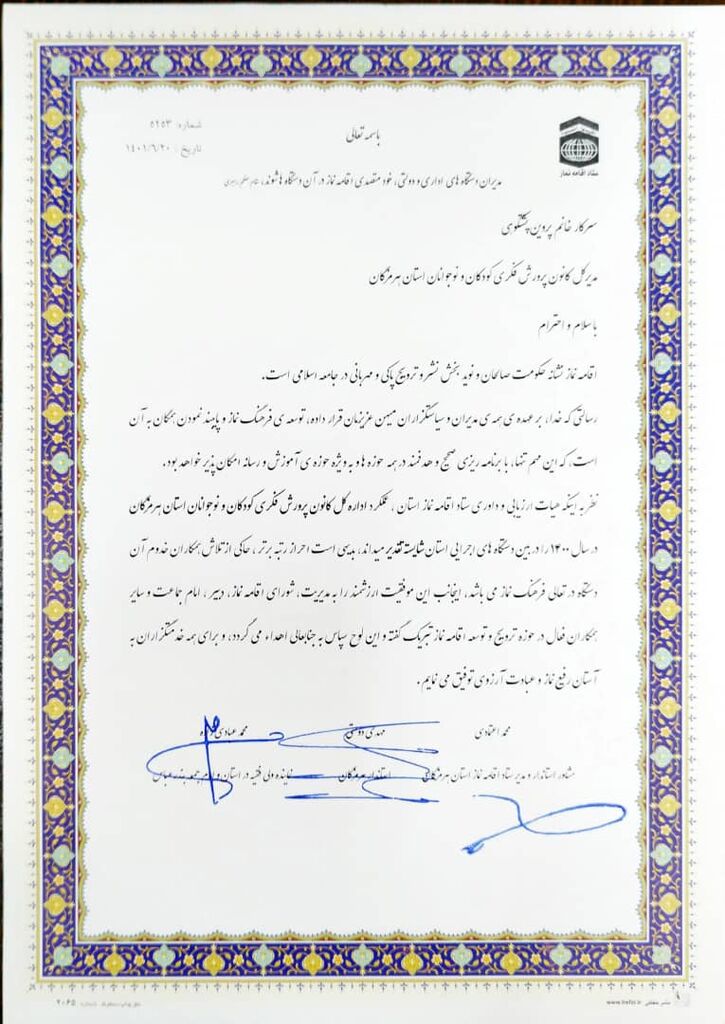 باسمه تعالی
شماره: ۵۲۵۳
تاریخ: ۱۴۰۱/۶/۲۰
ستاد اقامه نماز
مدیران دستگاه های اداری و دولتی، خود متصدی اقامه نماز در آن دستگاه ها شوند، مقام معظم رهبری
سرکار خانم پروین پشتکوهی
مدیرکل کانون پرورش فکری کودکان و نوجوانان استان هرمزگان
باسلام و احترام
اقامه نماز نشانه حکومت صالحان و نوید بخش نشر و ترویج پاکی و مهربانی در جامعه اسلامی است.
رسالتی که خدا، بر عهده ی همه ی مدیران و سیاستگزاران میهن عزیزمان قرار داده، توسعه ی فرهنگ نماز و پایبند نمودن همگان به آن
است، که این مهم تنها، با برنامه ریزی صحیح و هدفمند در همه حوزه ها و به ویژه حوزه ی آموزش و رسانه امکان پذیر خواهد بود.
نظر به اینکه هیات ارزیابی و داوری ستاد اقامه نماز استان ، عملکرد اداره کل کانون پرورش فکری کودکان و نوجوانان استان هرمزگان
در سال ۱۴۰۰ را در بین دستگاه های اجرایی استان شایسته تقدیر میداند، بدیهی است احراز رتبه برتر ، حاکی از تلاش همکاران خدوم آن
دستگاه در تعالی فرهنگ نماز می باشد، اینجانب این موفقیت ارزشمند را به مدیریت، شورای اقامه نماز، دبیر ، امام جماعت و سایر
همکاران فعال در حوزه ترویج و توسعه اقامه نماز تبریک گفته و این لوح سپاس به جنابعالی اهداء می گردد، و برای همه خدمتگزاران به
آستان رفیع نماز و عبادت آرزوی توفیق می نمایم.
محمد اعتمادی
مهدی دوستی
محمد عبادی زاده
مشاور استاندار و مدیر ستاد اقامه نماز استان هرمزگان
استاندار هرمزگان
نماینده ولی فقیه در استان و امام جمعه بندرعباس